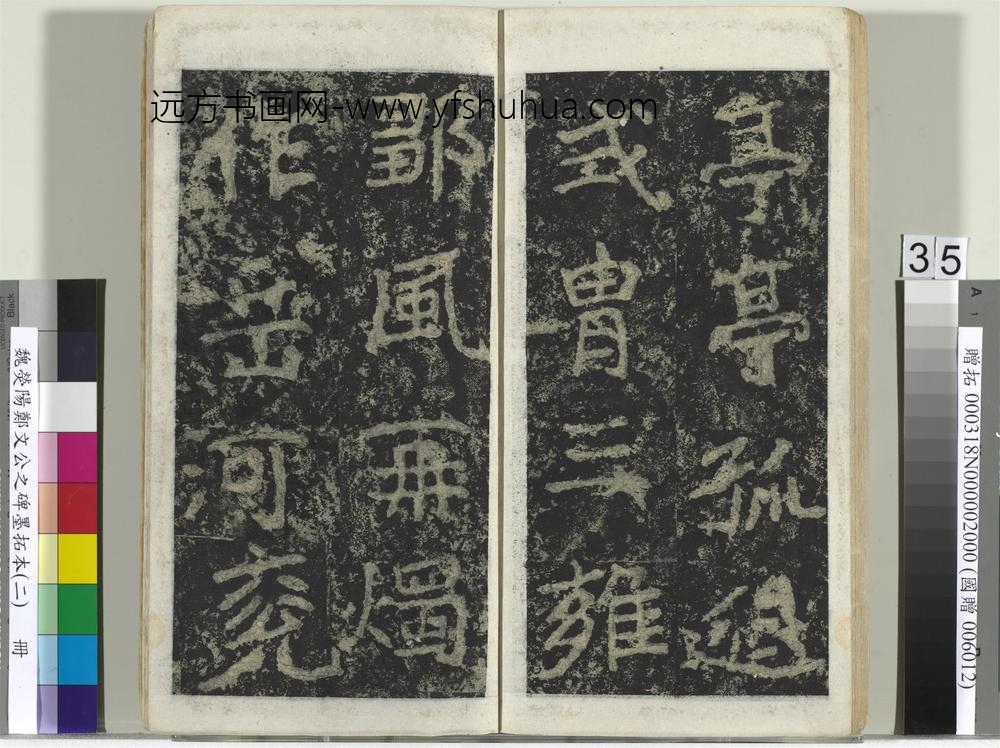 远方书画网-www.yfshuhua.com
亭亭孤逈
式胄三雍
鄒風再燭
作岳河兗
35
贈拓 000318N000002000 (國贈 006012)
魏熒陽鄭文公之碑墨拓本(二) 冊
Black
A
1